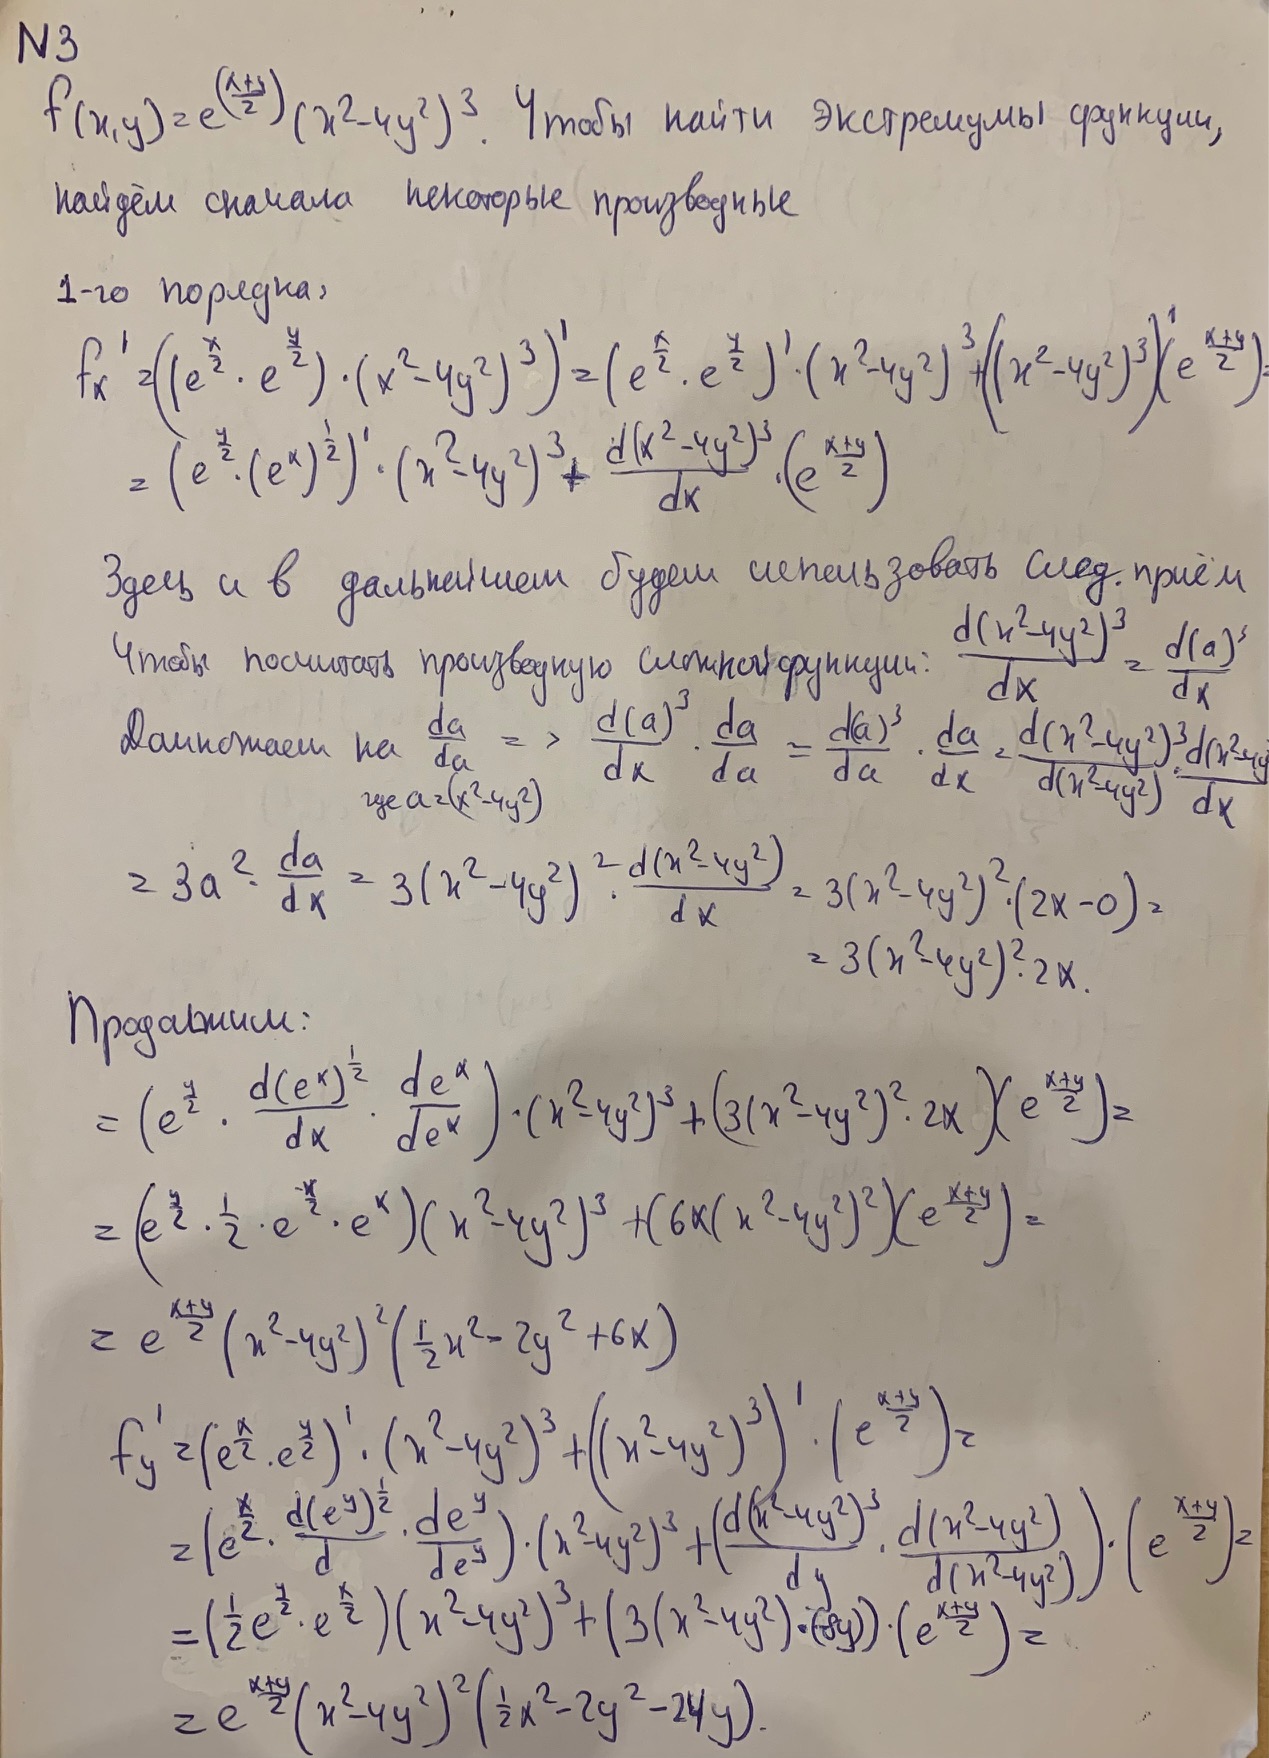 N3
f(x,y)=e^((x+y)/2) (x²-4y²)³. Чтобы найти экстремумы функции,
найдём сначала некоторые производные
1-го порядка:
fx' = ((e^(x/2) · e^(y/2)) · (x²-4y²)³)' = (e^(x/2) · e^(y/2))' · (x²-4y²)³ + ((x²-4y²)³)' (e^((x+y)/2)) =
= (e^(y/2) · (e^x)^(1/2))' · (x²-4y²)³ + d(x²-4y²)³/dx · (e^((x+y)/2))
Здесь и в дальнейшем будем использовать след. приём
Чтобы посчитать производную сложной функции: d(x²-4y²)³/dx = d(a)³/dx
Домножаем на da/da => d(a)³/dx · da/da = d(a)³/da · da/dx = d(x²-4y²)³/d(x²-4y²) · d(x²-4y²)/dx
где a=(x²-4y²)
= 3a² · da/dx = 3(x²-4y²)² · d(x²-4y²)/dx = 3(x²-4y²)² · (2x-0) =
= 3(x²-4y²)² · 2x.
Продолжим:
= (e^(y/2) · d(e^x)^(1/2)/dx · de^x/de^x) · (x²-4y²)³ + (3(x²-4y²)² · 2x)(e^((x+y)/2)) =
= (e^(y/2) · 1/2 · e^(-x/2) · e^x)(x²-4y²)³ + (6x(x²-4y²)²)(e^((x+y)/2)) =
= e^((x+y)/2) (x²-4y²)² (1/2 x² - 2y² + 6x)
fy' = (e^(x/2) · e^(y/2))' · (x²-4y²)³ + ((x²-4y²)³)' · (e^((x+y)/2)) =
= (e^(x/2) · d(e^y)^(1/2)/d · de^y/de^y) · (x²-4y²)³ + (d(x²-4y²)³/dy · d(x²-4y²)/d(x²-4y²)) · (e^((x+y)/2)) =
= (1/2 e^(y/2) · e^(x/2))(x²-4y²)³ + (3(x²-4y²) · (-8y)) · (e^((x+y)/2)) =
= e^((x+y)/2) (x²-4y²)² (1/2 x² - 2y² - 24y).